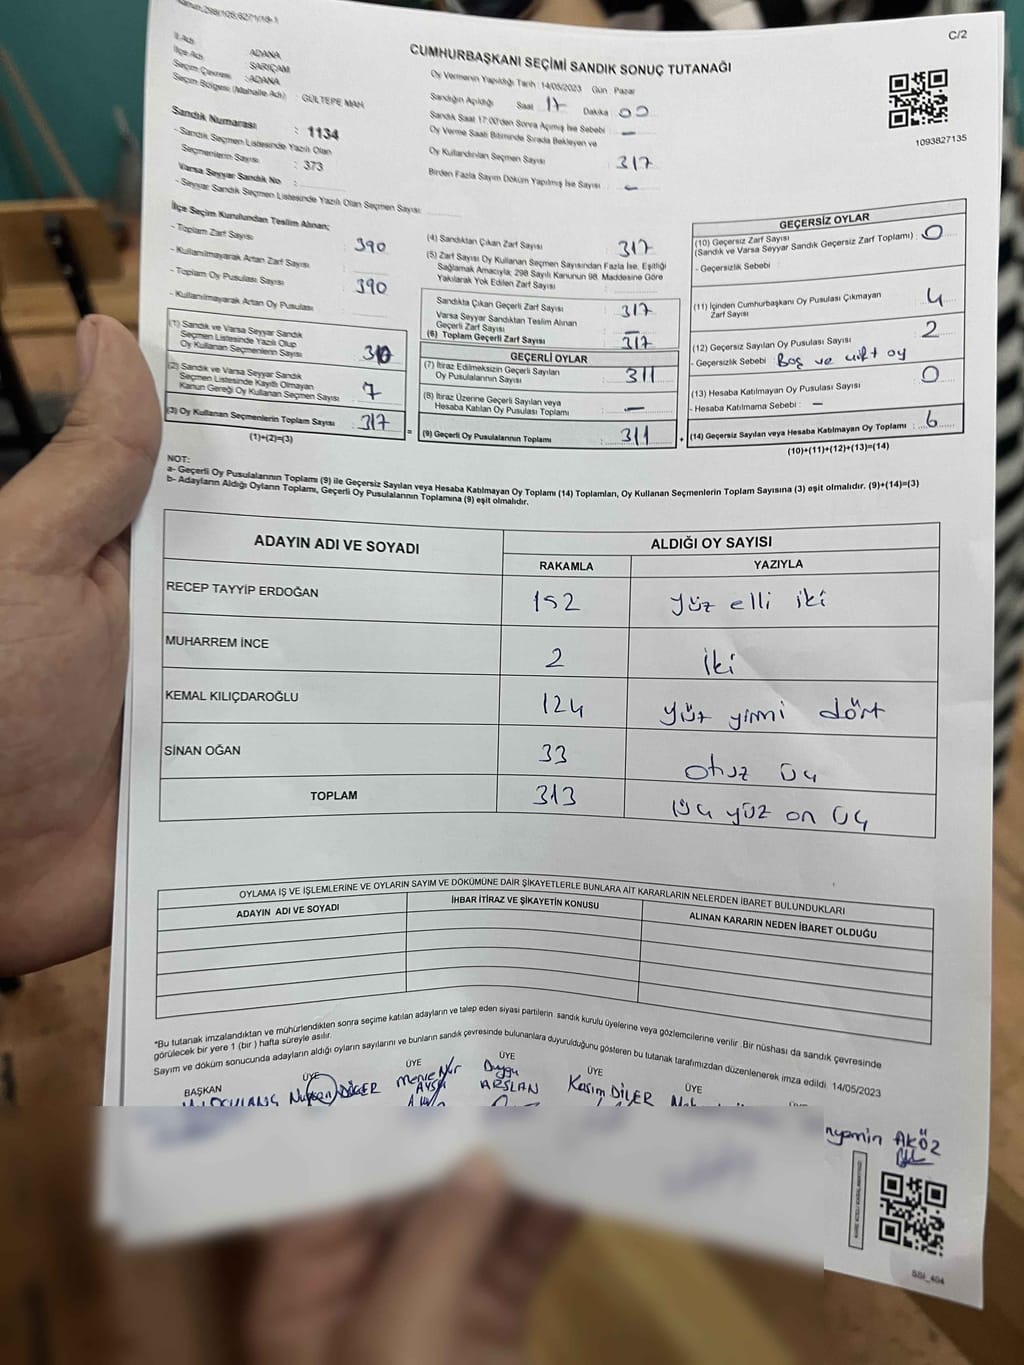 Kanun:298/126,6271/18-1
C/2
CUMHURBAŞKANI SEÇİMİ SANDIK SONUÇ TUTANAĞI
İl Adı : ADANA
İlçe Adı : SARIÇAM
Seçim Çevresi : ADANA
Seçim Bölgesi (Mahalle Adı) : GÜLTEPE MAH
Sandık Numarası : 1134
- Sandık Seçmen Listesinde Yazılı Olan
Seçmenlerin Sayısı : 373
Varsa Seyyar Sandık No :
- Seyyar Sandık Seçmen Listesinde Yazılı Olan Seçmen Sayısı :
Oy Vermenin Yapıldığı Tarih : 14/05/2023 Gün : Pazar
Sandığın Açıldığı Saat 17 Dakika 00
Sandık Saat 17:00'den Sonra Açılmış İse Sebebi : —
Oy Verme Saati Bitiminde Sırada Bekleyen ve
Oy Kullandırılan Seçmen Sayısı : 317
Birden Fazla Sayım Döküm Yapılmış İse Sayısı : —
1093827135
İlçe Seçim Kurulundan Teslim Alınan;
- Toplam Zarf Sayısı : 390
- Kullanılmayarak Artan Zarf Sayısı :
- Toplam Oy Pusulası Sayısı : 390
- Kullanılmayarak Artan Oy Pusulası :
(1) Sandık ve Varsa Seyyar Sandık
Seçmen Listesinde Yazılı Olup
Oy Kullanan Seçmenlerin Sayısı : 310
(2) Sandık ve Varsa Seyyar Sandık
Seçmen Listesinde Kayıtlı Olmayan
Kanun Gereği Oy Kullanan Seçmen Sayısı : 7
(3) Oy Kullanan Seçmenlerin Toplam Sayısı : 317
(1)+(2)=(3)
=
(4) Sandıktan Çıkan Zarf Sayısı : 317
(5) Zarf Sayısı Oy Kullanan Seçmen Sayısından Fazla İse, Eşitliği
Sağlamak Amacıyla; 298 Sayılı Kanunun 98. Maddesine Göre
Yakılarak Yok Edilen Zarf Sayısı :
Sandıkta Çıkan Geçerli Zarf Sayısı : 317
Varsa Seyyar Sandıktan Teslim Alınan
Geçerli Zarf Sayısı : —
(6) Toplam Geçerli Zarf Sayısı : 317
GEÇERLİ OYLAR
(7) İtiraz Edilmeksizin Geçerli Sayılan
Oy Pusulalarının Sayısı : 311
(8) İtiraz Üzerine Geçerli Sayılan veya
Hesaba Katılan Oy Pusulası Toplamı : —
(9) Geçerli Oy Pusulalarının Toplamı : 311
+
GEÇERSİZ OYLAR
(10) Geçersiz Zarf Sayısı
(Sandık ve Varsa Seyyar Sandık Geçersiz Zarf Toplamı) : 0
- Geçersizlik Sebebi :
(11) İçinden Cumhurbaşkanı Oy Pusulası Çıkmayan
Zarf Sayısı : 4
(12) Geçersiz Sayılan Oy Pusulası Sayısı : 2
- Geçersizlik Sebebi : Boş ve çift oy
(13) Hesaba Katılmayan Oy Pusulası Sayısı : 0
- Hesaba Katılmama Sebebi : —
(14) Geçersiz Sayılan veya Hesaba Katılmayan Oy Toplamı : 6
(10)+(11)+(12)+(13)=(14)
NOT:
a- Geçerli Oy Pusulalarının Toplamı (9) ile Geçersiz Sayılan veya Hesaba Katılmayan Oy Toplamı (14) Toplamları, Oy Kullanan Seçmenlerin Toplam Sayısına (3) eşit olmalıdır. (9)+(14)=(3)
b- Adayların Aldığı Oyların Toplamı, Geçerli Oy Pusulalarının Toplamına (9) eşit olmalıdır.
ADAYIN ADI VE SOYADI ALDIĞI OY SAYISI
RAKAMLA YAZIYLA
RECEP TAYYİP ERDOĞAN 152 yüz elli iki
MUHARREM İNCE 2 iki
KEMAL KILIÇDAROĞLU 124 yüz yirmi dört
SİNAN OĞAN 33 otuz üç
TOPLAM 313 üç yüz on üç
OYLAMA İŞ VE İŞLEMLERİNE VE OYLARIN SAYIM VE DÖKÜMÜNE DAİR ŞİKAYETLERLE BUNLARA AİT KARARLARIN NELERDEN İBARET BULUNDUKLARI
ADAYIN ADI VE SOYADI İHBAR İTİRAZ VE ŞİKAYETİN KONUSU ALINAN KARARIN NEDEN İBARET OLDUĞU
*Bu tutanak imzalandıktan ve mühürlendikten sonra seçime katılan adayların ve talep eden siyasi partilerin sandık kurulu üyelerine veya gözlemcilerine verilir. Bir nüshası da sandık çevresinde
görülecek bir yere 1 (bir) hafta süreyle asılır.
Sayım ve döküm sonucunda adayların aldığı oyların sayılarını ve bunların sandık çevresinde bulunanlara duyurulduğunu gösteren bu tutanak tarafımızdan düzenlenerek imza edildi. 14/05/2023
BAŞKAN ÜYE ÜYE ÜYE ÜYE ÜYE
DİĞER Merve Nur Duygu ARSLAN Kasım DİLER
AKÖZ
SSI_404